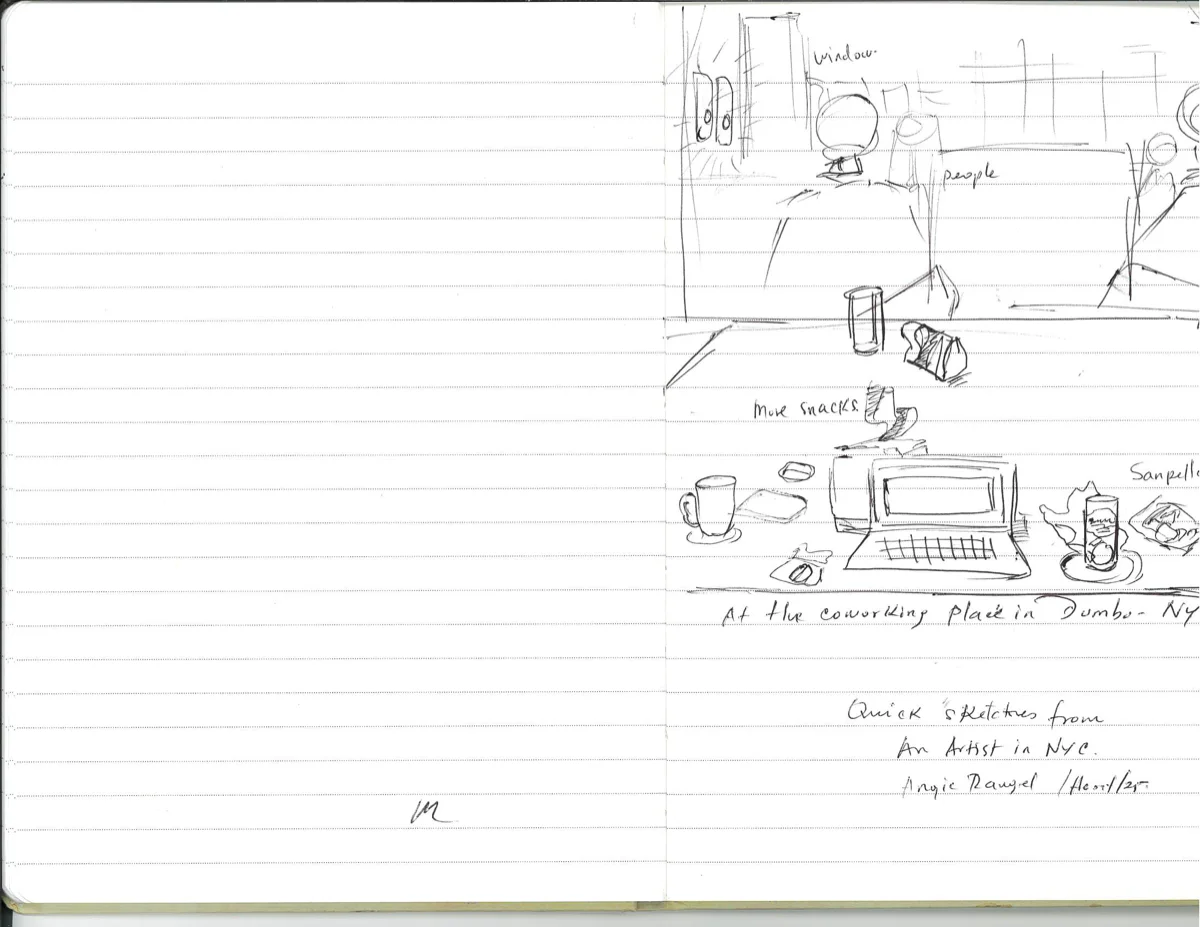 window.
people
More snacks.
Sanpelle
At the coworking place in Dumbo - NY
Quick "sketches from
An Artist in NYC.
Angie Rangel